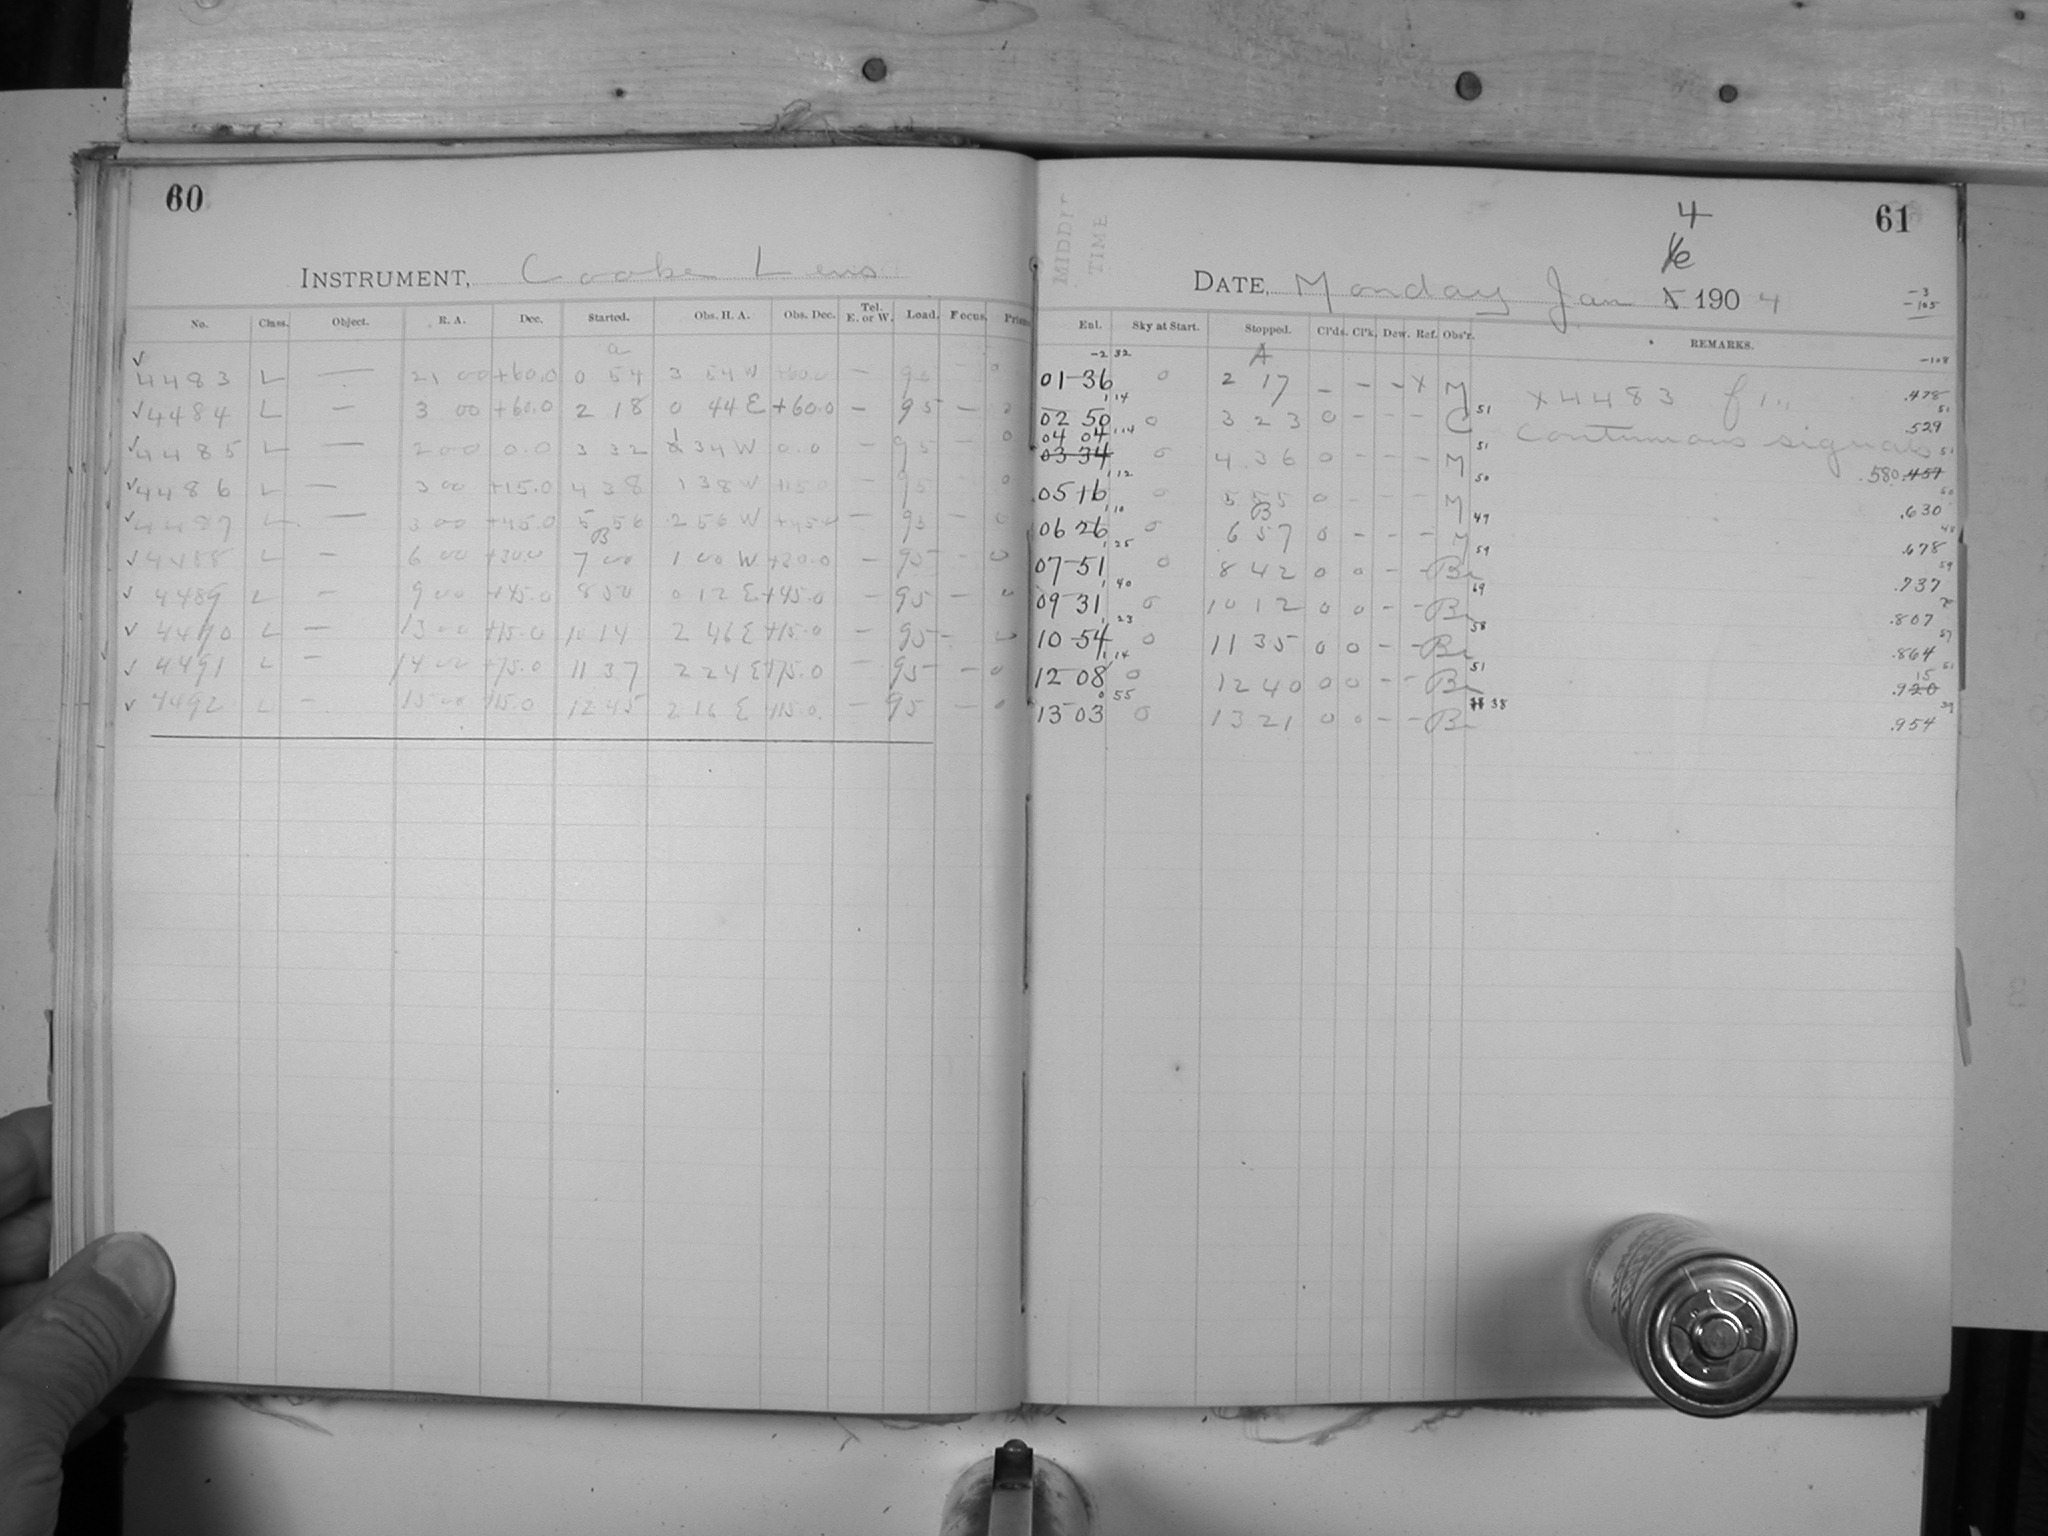 60
INSTRUMENT, Cooke Lens
No. Class. Object. R. A. Dec. Started. Obs. H. A. Obs. Dec. Tel. E. or W. Load. Focus. Prism
a
✓ 4483 L — 21 00 +60.0 0 54 3 54 W +60.0 — 95 — 0
✓ 4484 L — 3 00 +60.0 2 18 0 44 E +60.0 — 95 — 0
✓ 4485 L — 2 00 0.0 3 32 1 34 W 0.0 — 95 — 0
✓ 4486 L — 3 00 +15.0 4 38 1 38 W +15.0 — 95 0
✓ 4487 L — 3 00 +45.0 5 56 2 56 W +45.0 — 95 — 0
B
✓ 4488 L — 6 00 +30.0 7 00 1 00 W +30.0 — 95 — 0
✓ 4489 L — 9 00 +45.0 8 50 0 12 E +45.0 — 95 — 0
✓ 4490 L — 13 00 +15.0 10 14 2 46 E +15.0 — 95 — 0
✓ 4491 L — 14 00 +75.0 11 37 2 24 E +75.0 — 95 — 0
✓ 4492 L — 15 00 +15.0 12 45 2 16 E +15.0 — 95 — 0
61
TIME
4
DATE, Monday Jan 1904
-3
-105
Enl. Sky at Start. Stopped. Cl'ds. Cl'k. Dew. Ref. Obs'r. REMARKS.
-2 32 A -108
01 36 0 2 17 — — — X M X 4483 .478
1 14 51 51
02 50 0 3 23 0 — — — C .529
04 04 1 14 51 continuous signals 51
03 34 0 4 36 0 — — — M .580 .457
1 12 50 50
05 16 0 5 55 0 — — — M .630
1 10 B 49 48
06 26 0 6 57 0 — — — M .678
1 25 59 59
07 51 0 8 42 0 0 — — Br .737
1 40 69 70
09 31 0 10 12 0 0 — — Br .807
1 23 58 57
10 54 0 11 35 0 0 — — Br .864
1 14 51 51
12 08 0 12 40 0 0 — — Br 15 .920
0 55 38 39
13 03 0 13 21 0 0 — — Br .954